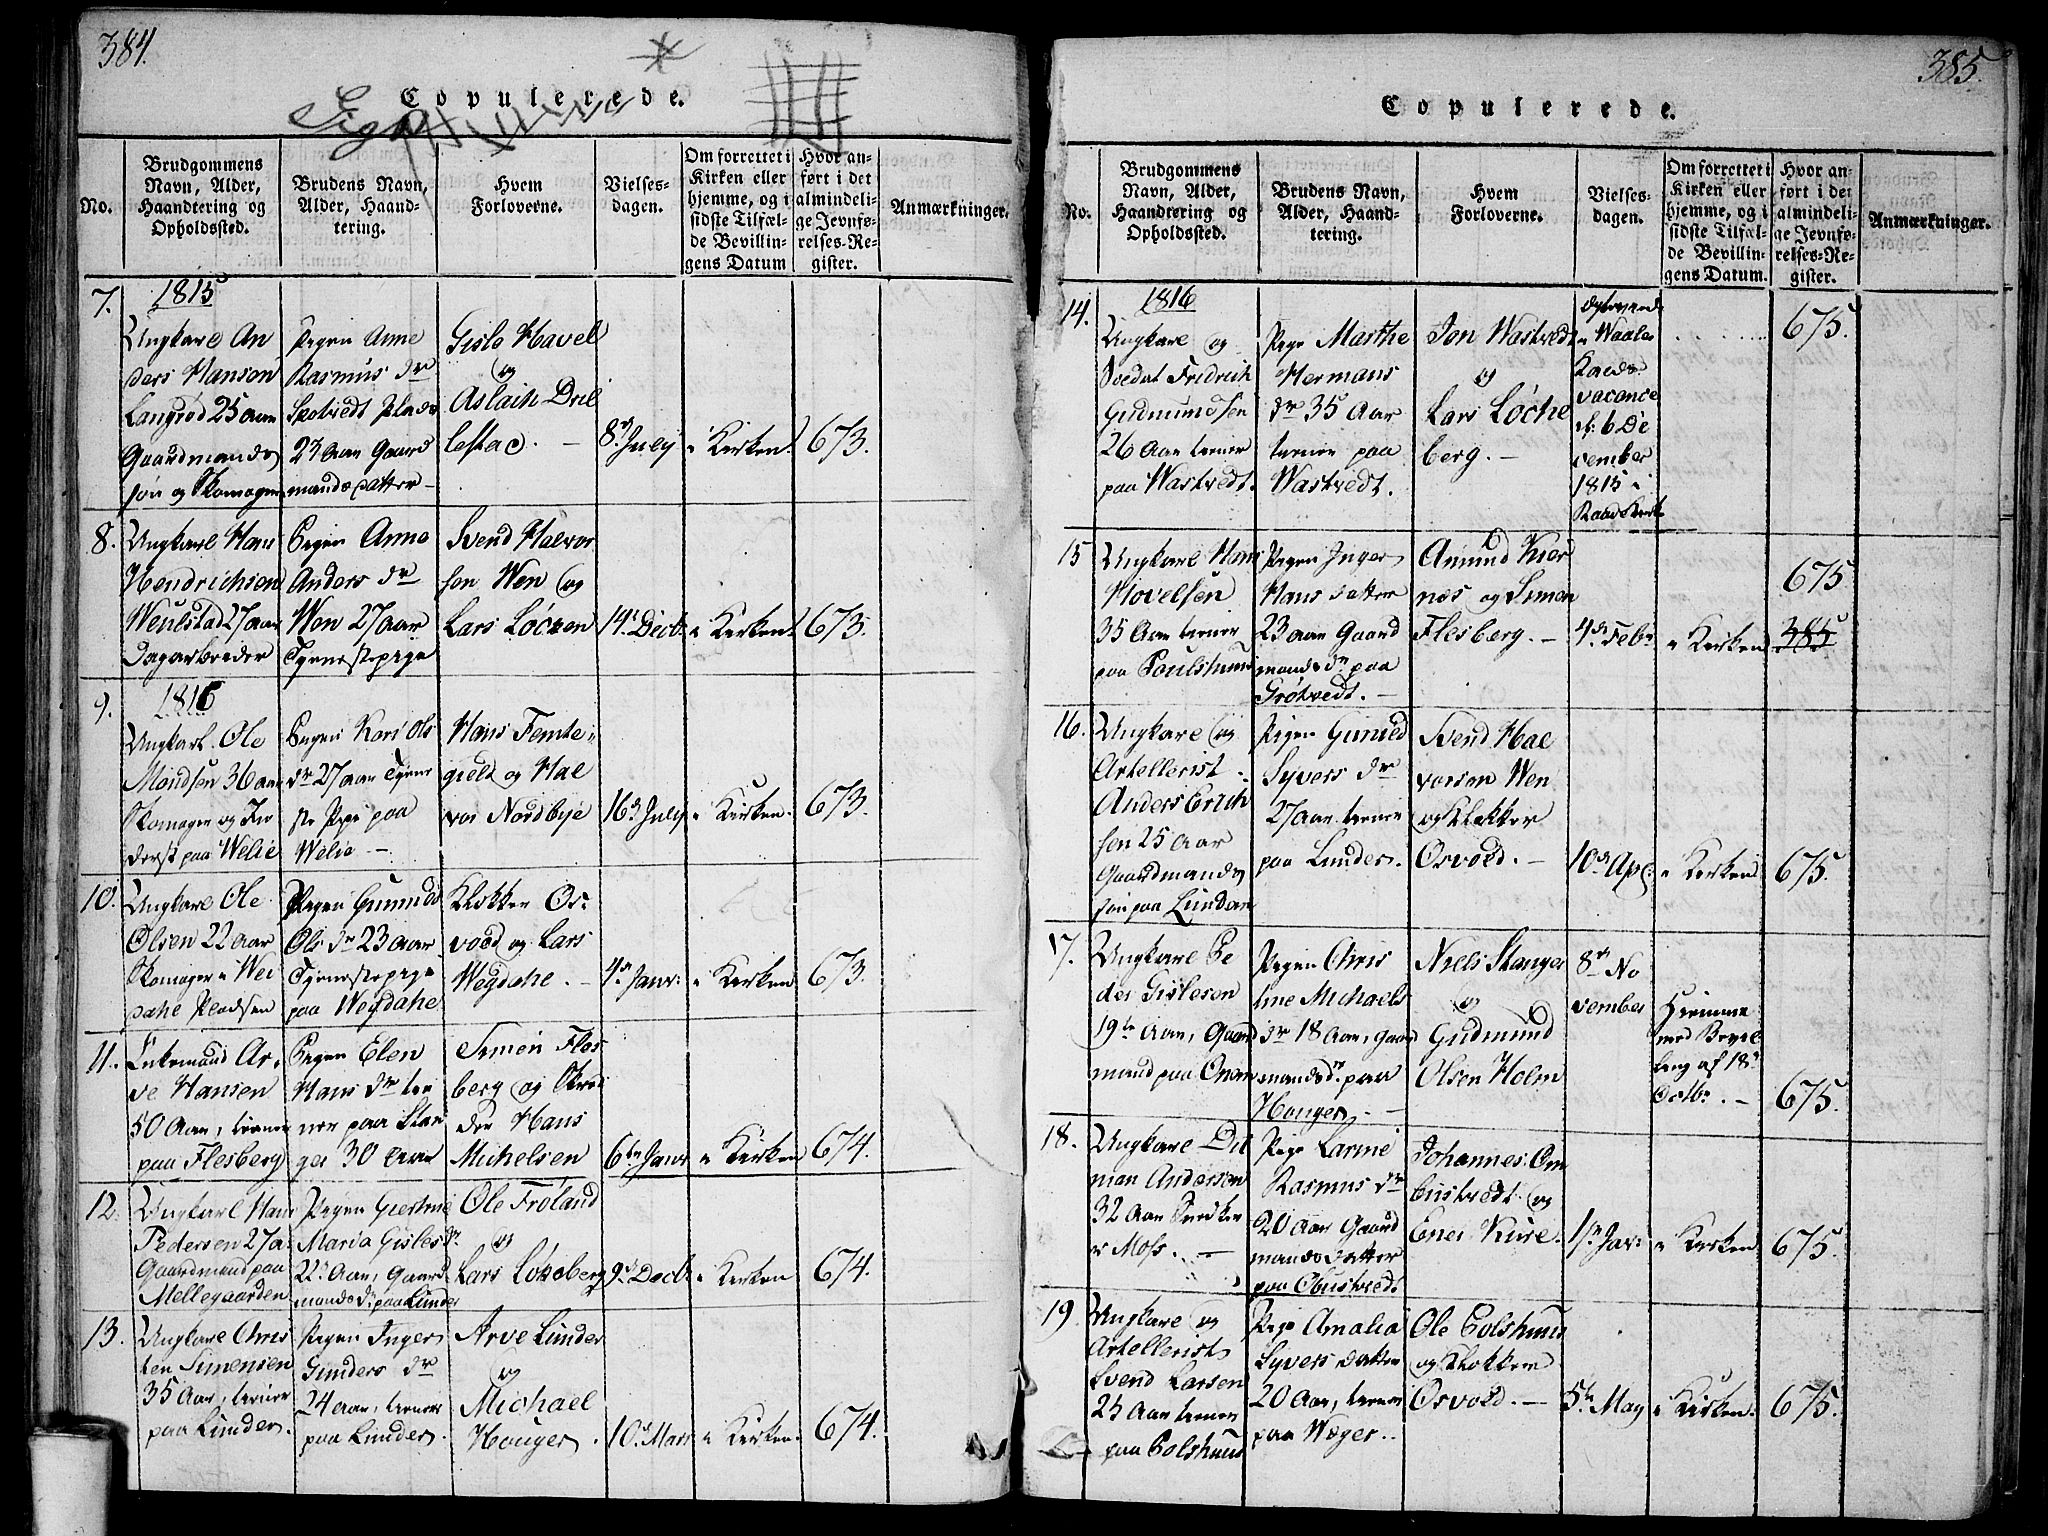 384.
Copulerede.
No.
Brudgommens
Navn, Alder,
Haandtering og
Opholdssted.
Brudens Navn,
Alder, Haand-
tering.
Hvem
Forloverne.
Vielses-
dagen.
Om forrettet i
Kirken eller
hjemme, og i
sidste Tilfæl-
de Bevillin-
gens Datum
Hvor an-
ført i det
almindeli-
ge Jevnfø-
relses-Re-
gister.
Anmærkninger.
7.
1815
Ungkarl An
ders Hansen
Langrød 25 aar
Gaardmands
søn og Skomager
Pigen Anne
Rasmus dr
23 aar Gaard
mands datter
Gisle Havel
og
Aslach
8de July
i Kirken
673.
8.
Ungkarl Hans
Hendrichsen
27 aar
Pigen Anna
Anders dr
Wen 27 aar
Tjenestepige
Svend Halvor
sen Wen og
Lars Lócken
14. Decbr
i Kirken
673.
9.
1816
Ungkarl Ole
36 aar
Skomager og In
derst paa Welie
Pigen Kari Ols
dr 27 aar Tjene
ste Pige paa
Welie
Hans Femte-
gield og Hal
vor Nordbye
16de July
i Kirken
673.
10.
Ungkarl Ole
Olsen 22 aar
Skomager i Wei
dahl Pladsen
Pigen Gunnild
Ols dr 23 aar
Tjenestepige
paa Wegdahl
Klokker Os-
vold og Lars
Wegdahl.
4de Janr:
i Kirken
673.
11.
Enkemand Ar-
ve Hansen
50 Aar, tiener
paa Flesberg
Pigen Elen
Hans dr tie
ner paa Stan
ger 30 Aar
Simen Fles
berg og Skræ
der Hans
Michelsen
6te Janr
i Kirken
674.
12.
Ungkarl Hans
Pedersen 27 a.
Gaardmand paa
Mellegaarden
Pigen
Maria Gisles dr
22 Aar, Gaard
mands dr paa Lunder
Ole Fróland
og
Lars Lókeberg
9de Decbr
i Kirken
674.
13.
Ungkarl Chris
ten Simensen
35 Aar, tiener
paa Lunder.
Pigen Inger
Gunders dr
24 aar, tiener
paa Lunder.
Arve Lunder
og
Michael
Houger.
10. Mars
i Kirken.
674.
385.
Copulerede.
No.
Brudgommens
Navn, Alder,
Haandtering og
Opholdssted.
Brudens Navn,
Alder, Haand-
tering.
Hvem
Forloverne.
Vielses-
dagen.
Om forrettet i
Kirken eller
hjemme, og i
sidste Tilfæl-
de Bevillin-
gens Datum.
Hvor an-
ført i det
almindeli-
ge Jevnfø-
relses-Re-
gister.
Anmærkninger.
14.
1816
Ungkarl og
Soldat Fridrich
Gudmundsen
26 Aar tiener
paa Wastvedt.
Pige Marthe
Hermans
dr 35 Aar
tiener paa
Wastvedt.
Jon Wastvedt
og
Lars Løche
berg.
vacance
d: 6 De
cember
1815 i
675.
15
Ungkarl Hans
Hovelsen
35 Aar tiener
paa Poulshuus
Pigen Inger
Hans datter
23 aar Gaard
mands dr paa
Grótvedt.
Amund Kier
næs og Simen
Flesberg.
4de Febr
i Kirken
675.
385
16.
Ungkarl og
Artellerist
Anders Erich
sen 25 Aar
Gaardmands
søn paa Lunder
Pigen Gunild
Syvers dr
27 aar tiener
paa Lunder.
Svend Hal
vorsen Wen
og Klokker
Osvold.
10de Apl:
i Kirken
675.
17.
Ungkarl Pe
der Gislesen
19te Aar, Gaard
mand paa
Pigen Chris
tine Michaels
dr 18 Aar, Gaard
mands dr paa
Houger.
Niels Stanger
og
Gudmund
Olsen Holm
8de No
vember
Hiemme
med Bevil
ling af 18de
Octbr.
675.
18.
Ungkarl Dit
man Andersen
32 Aar Snedker
i Moss.
Pige Larine
Rasmus dr
20 aar Gaard
mands datter
Johannes Om
bustvedt og
Ener Kure.
1ste Jar:
i Kirken
675.
19
Ungkarl og
Artellerist
Svend Larsen
25 Aar tiener
paa Polshuus
Pige Amalia
Syvers datter
20 Aar, tiener
paa Wæger.
Ole Polshuus
og Klokker
Osvold.
5te May
i Kirken.
675.